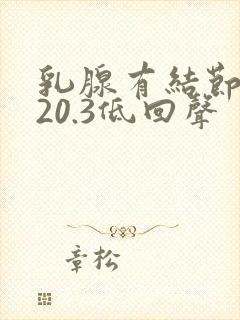 乳腺有結節
20.3低回聲
章松